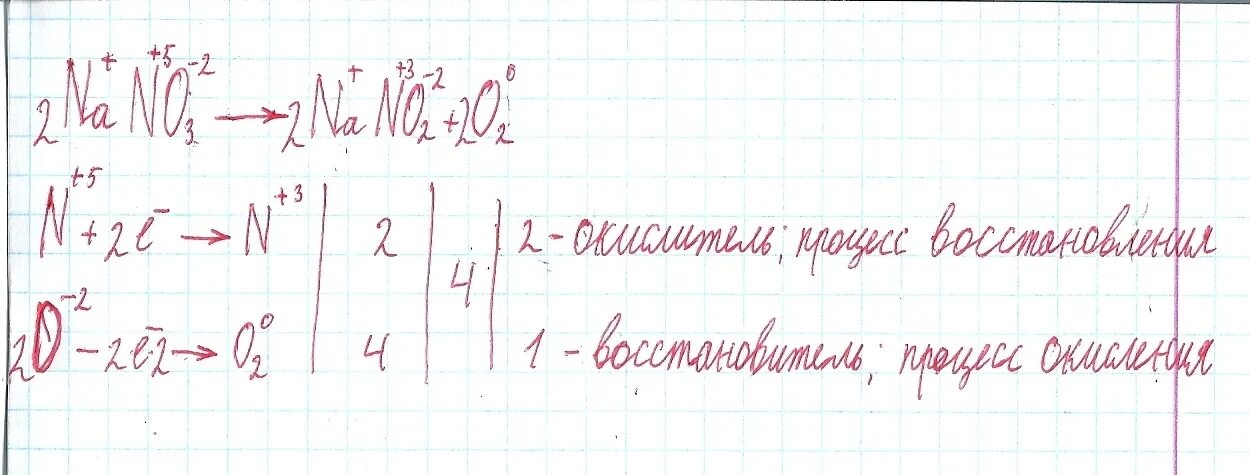 2Na⁺N⁺⁵O₃⁻² → 2Na⁺N⁺³O₂⁻² + 2O₂⁰
N⁺⁵ + 2e⁻ → N⁺³ | 2 | 4 | 2 - окислитель; процесс восстановления
2O⁻² - 2e⁻2 → O₂⁰ | 4 | | 1 - восстановитель; процесс окисления